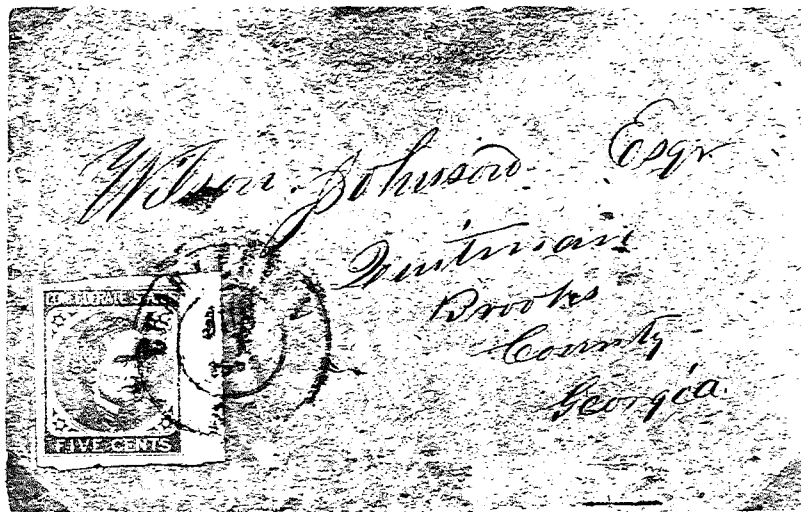 Wilson Johnson Esqr
Quitman
Brooks
County
Georgia.
CONFEDERATE STA
FIVE CENTS